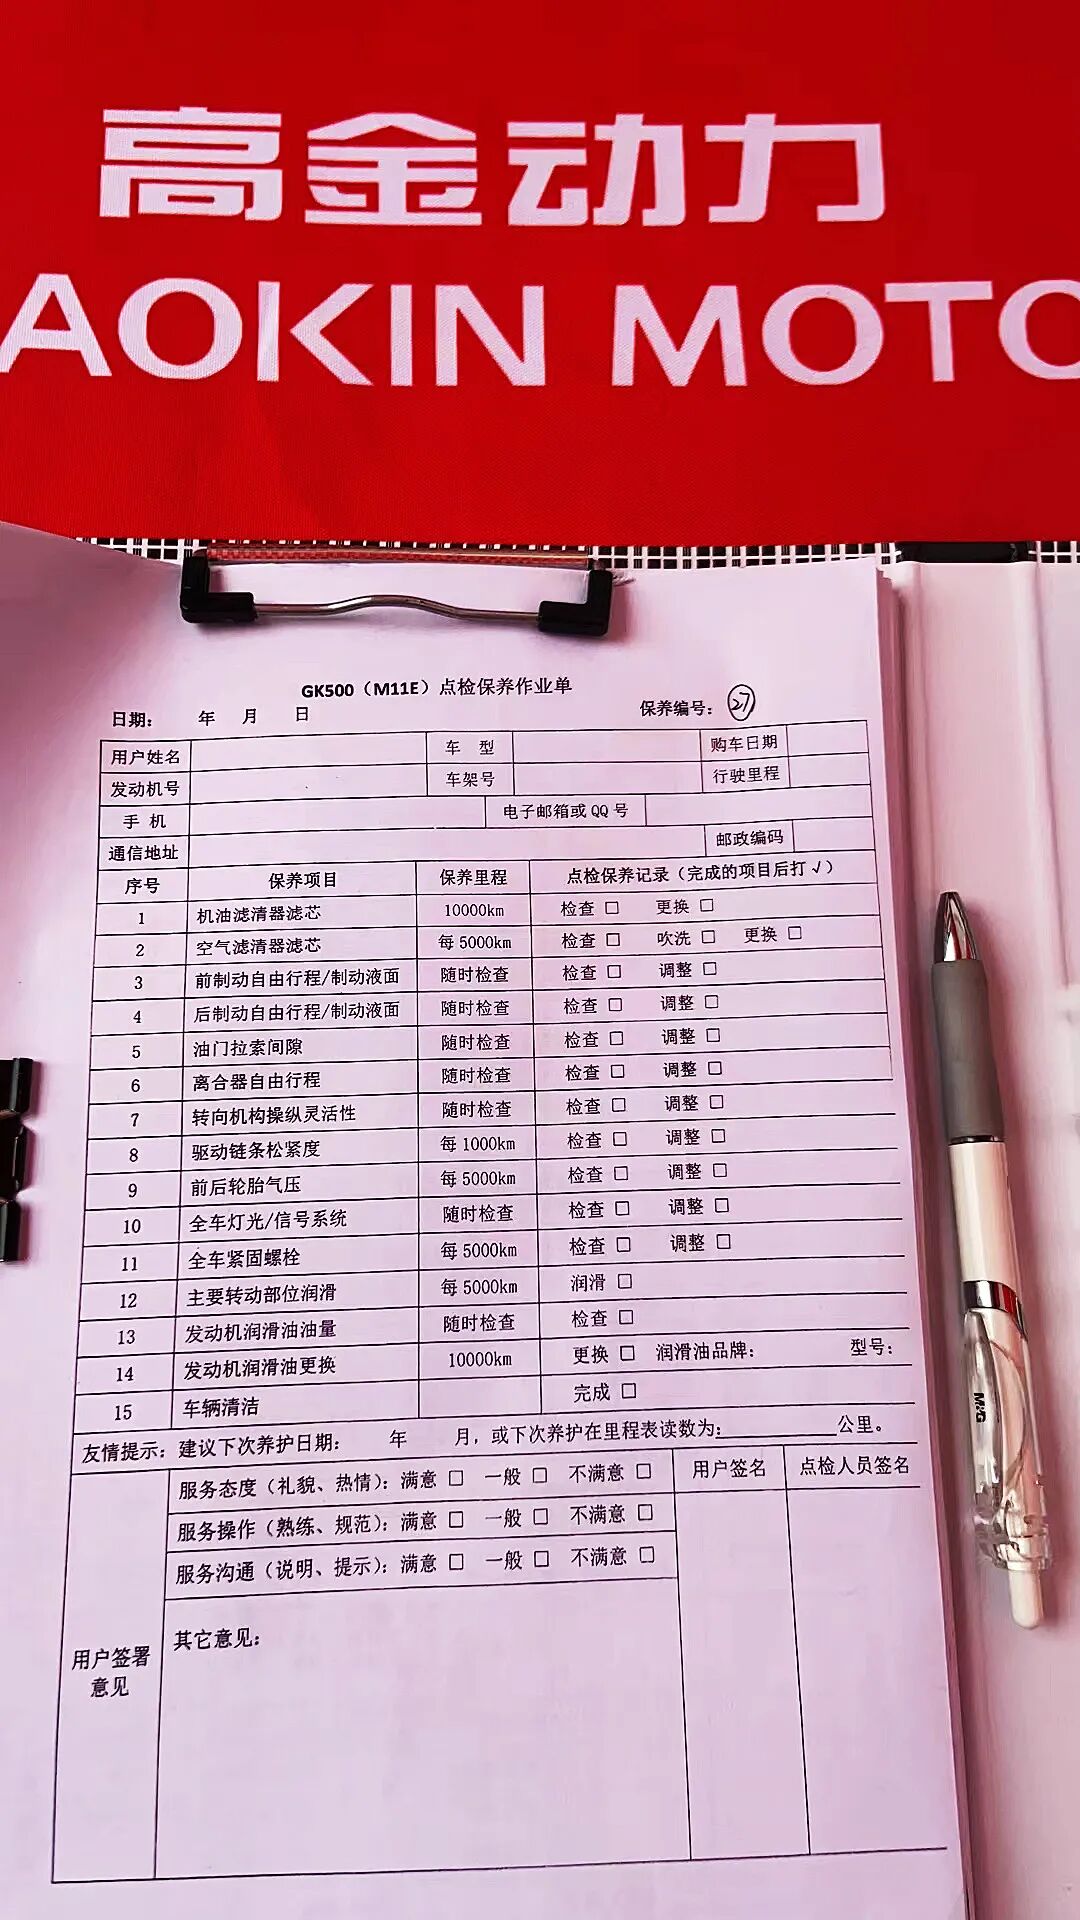 高金动力
AOKIN MOTO
GK500（M11E）点检保养作业单
日期： 年 月 日 保养编号： 27
用户姓名 车 型 购车日期
发动机号 车架号 行驶里程
手 机 电子邮箱或 QQ 号
通信地址 邮政编码
序号 保养项目 保养里程 点检保养记录（完成的项目后打 √ ）
1 机油滤清器滤芯 10000km 检查 □ 更换 □
2 空气滤清器滤芯 每 5000km 检查 □ 吹洗 □ 更换 □
3 前制动自由行程/制动液面 随时检查 检查 □ 调整 □
4 后制动自由行程/制动液面 随时检查 检查 □ 调整 □
5 油门拉索间隙 随时检查 检查 □ 调整 □
6 离合器自由行程 随时检查 检查 □ 调整 □
7 转向机构操纵灵活性 随时检查 检查 □ 调整 □
8 驱动链条松紧度 每 1000km 检查 □ 调整 □
9 前后轮胎气压 每 5000km 检查 □ 调整 □
10 全车灯光/信号系统 随时检查 检查 □ 调整 □
11 全车紧固螺栓 每 5000km 检查 □ 调整 □
12 主要转动部位润滑 每 5000km 润滑 □
13 发动机润滑油油量 随时检查 检查 □
14 发动机润滑油更换 10000km 更换 □ 润滑油品牌： 型号：
15 车辆清洁 完成 □
友情提示：建议下次养护日期： 年 月，或下次养护在里程表读数为：____________公里。
用户签署意见
服务态度（礼貌、热情）：满意 □ 一般 □ 不满意 □ 用户签名 点检人员签名
服务操作（熟练、规范）：满意 □ 一般 □ 不满意 □
服务沟通（说明、提示）：满意 □ 一般 □ 不满意 □
其它意见：
M&G